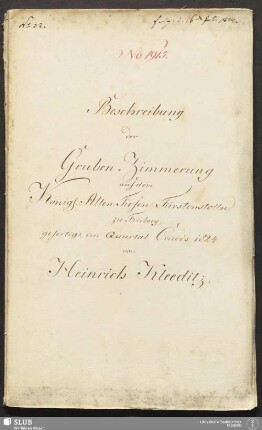 No 1915.
Beschreibung
der
Gruben-Zimmerung
auf dem
Königl. Alten Tiefen Fürstenstolln
zu Freiberg,
gefertigt im Quartal Crucis 1824
von
Heinrich Kleeditz
SLUB
Wir führen Wissen.